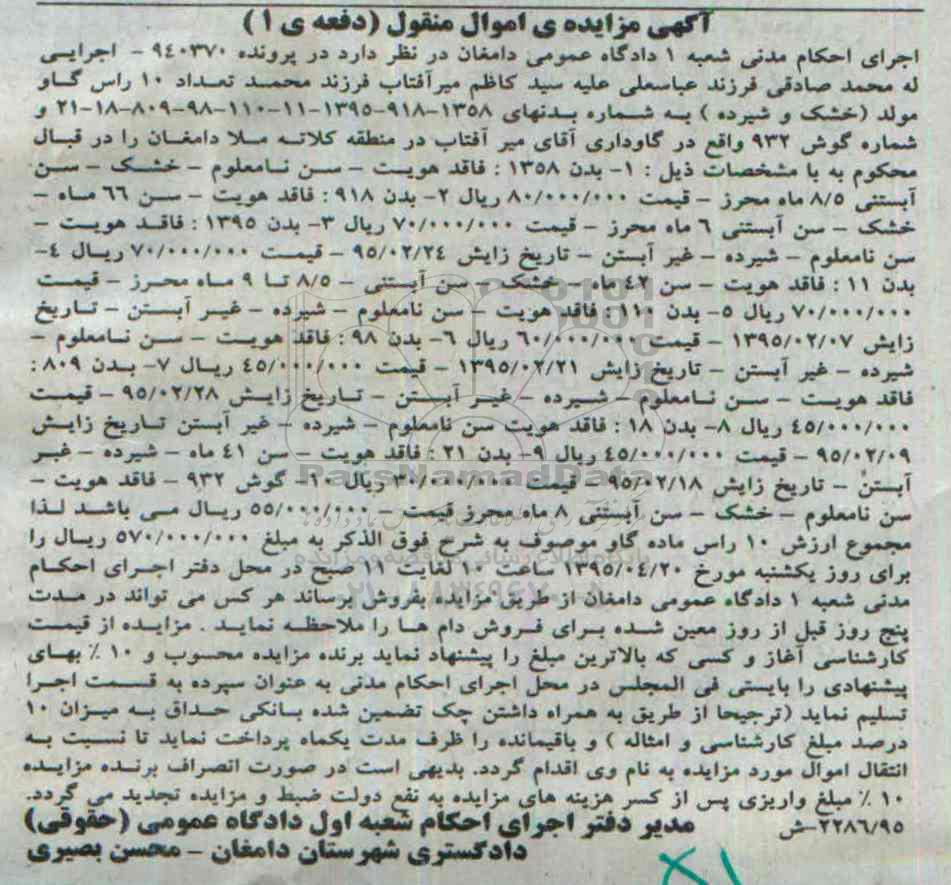 آگهی مزایده ی اموال منقول (دفعه ی ۱)
اجرای احکام مدنی شعبه ۱ دادگاه عمومی دامغان در نظر دارد در پرونده ۹۴۰۳۷۰ - اجرایی
له محمد صادقی فرزند عباسعلی علیه سید کاظم میرآفتاب فرزند محمد تعداد ۱۰ راس گاو
مولد (خشک و شیرده) به شماره بدنهای ۱۳۵۸-۹۱۸-۱۳۹۵-۱۱-۱۱۰-۹۸-۸۰۹-۱۸-۲۱ و
شماره گوش ۹۳۲ واقع در گاوداری آقای میر آفتاب در منطقه کلاته ملا دامغان را در قبال
محکوم به با مشخصات ذیل : ۱- بدن ۱۳۵۸ : فاقد هویت - سن نامعلوم - خشک - سن
آبستنی ۸/۵ ماه محرز - قیمت ۸۰/۰۰۰/۰۰۰ ریال ۲- بدن ۹۱۸ : فاقد هویت - سن ۶۶ ماه -
خشک - سن آبستنی ۶ ماه محرز - قیمت ۷۰/۰۰۰/۰۰۰ ریال ۳- بدن ۱۳۹۵ : فاقد هویت -
سن نامعلوم - شیرده - غیر آبستن - تاریخ زایش ۹۵/۰۲/۲۴ - قیمت ۷۰/۰۰۰/۰۰۰ ریال ۴-
بدن ۱۱ : فاقد هویت - سن ۴۲ ماه - خشک - سن آبستنی - ۸/۵ تا ۹ ماه محرز - قیمت
۷۰/۰۰۰/۰۰۰ ریال ۵- بدن ۱۱۰ : فاقد هویت - سن نامعلوم - شیرده - غیر آبستن - تاریخ
زایش ۱۳۹۵/۰۲/۰۷ - قیمت ۶۰/۰۰۰/۰۰۰ ریال ۶- بدن ۹۸ : فاقد هویت - سن نامعلوم -
شیرده - غیر آبستن - تاریخ زایش ۱۳۹۵/۰۲/۲۱ - قیمت ۴۵/۰۰۰/۰۰۰ ریال ۷- بدن ۸۰۹ :
فاقد هویت - سن نامعلوم - شیرده - غیر آبستن - تاریخ زایش ۹۵/۰۲/۲۸ - قیمت
۴۵/۰۰۰/۰۰۰ ریال ۸- بدن ۱۸ : فاقد هویت سن نامعلوم - شیرده - غیر آبستن تاریخ زایش
۹۵/۰۲/۰۹ - قیمت ۴۵/۰۰۰/۰۰۰ ریال ۹- بدن ۲۱ : فاقد هویت - سن ۴۱ ماه - شیرده - غیر
آبستن - تاریخ زایش ۹۵/۰۲/۱۸ - قیمت ۳۰/۰۰۰/۰۰۰ ریال ۱۰- گوش ۹۳۲ - فاقد هویت -
سن نامعلوم - خشک - سن آبستنی ۸ ماه محرز قیمت - ۵۵/۰۰۰/۰۰۰ ریال می باشد لذا
مجموع ارزش ۱۰ راس ماده گاو موصوف به شرح فوق الذکر به مبلغ ۵۷۰/۰۰۰/۰۰۰ ریال را
برای روز یکشنبه مورخ ۱۳۹۵/۰۴/۲۰ ساعت ۱۰ لغایت ۱۱ صبح در محل دفتر اجرای احکام
مدنی شعبه ۱ دادگاه عمومی دامغان از طریق مزایده بفروش برساند هر کس می تواند در مدت
پنج روز قبل از روز معین شده برای فروش دام ها را ملاحظه نماید . مزایده از قیمت
کارشناسی آغاز و کسی که بالاترین مبلغ را پیشنهاد نماید برنده مزایده محسوب و ۱۰ ٪ بهای
پیشنهادی را بایستی فی المجلس در محل اجرای احکام مدنی به عنوان سپرده به قسمت اجرا
تسلیم نماید (ترجیحا از طریق به همراه داشتن چک تضمین شده بانکی حداق به میزان ۱۰
درصد مبلغ کارشناسی و امثاله ) و باقیمانده را ظرف مدت یکماه پرداخت نماید تا نسبت به
انتقال اموال مورد مزایده به نام وی اقدام گردد. بدیهی است در صورت انصراف برنده مزایده
۱۰ ٪ مبلغ واریزی پس از کسر هزینه های مزایده به نفع دولت ضبط و مزایده تجدید می گردد.
۲۲۸۶/۹۵-ش مدیر دفتر اجرای احکام شعبه اول دادگاه عمومی (حقوقی)
دادگستری شهرستان دامغان - محسن بصیری
ParsNamadData